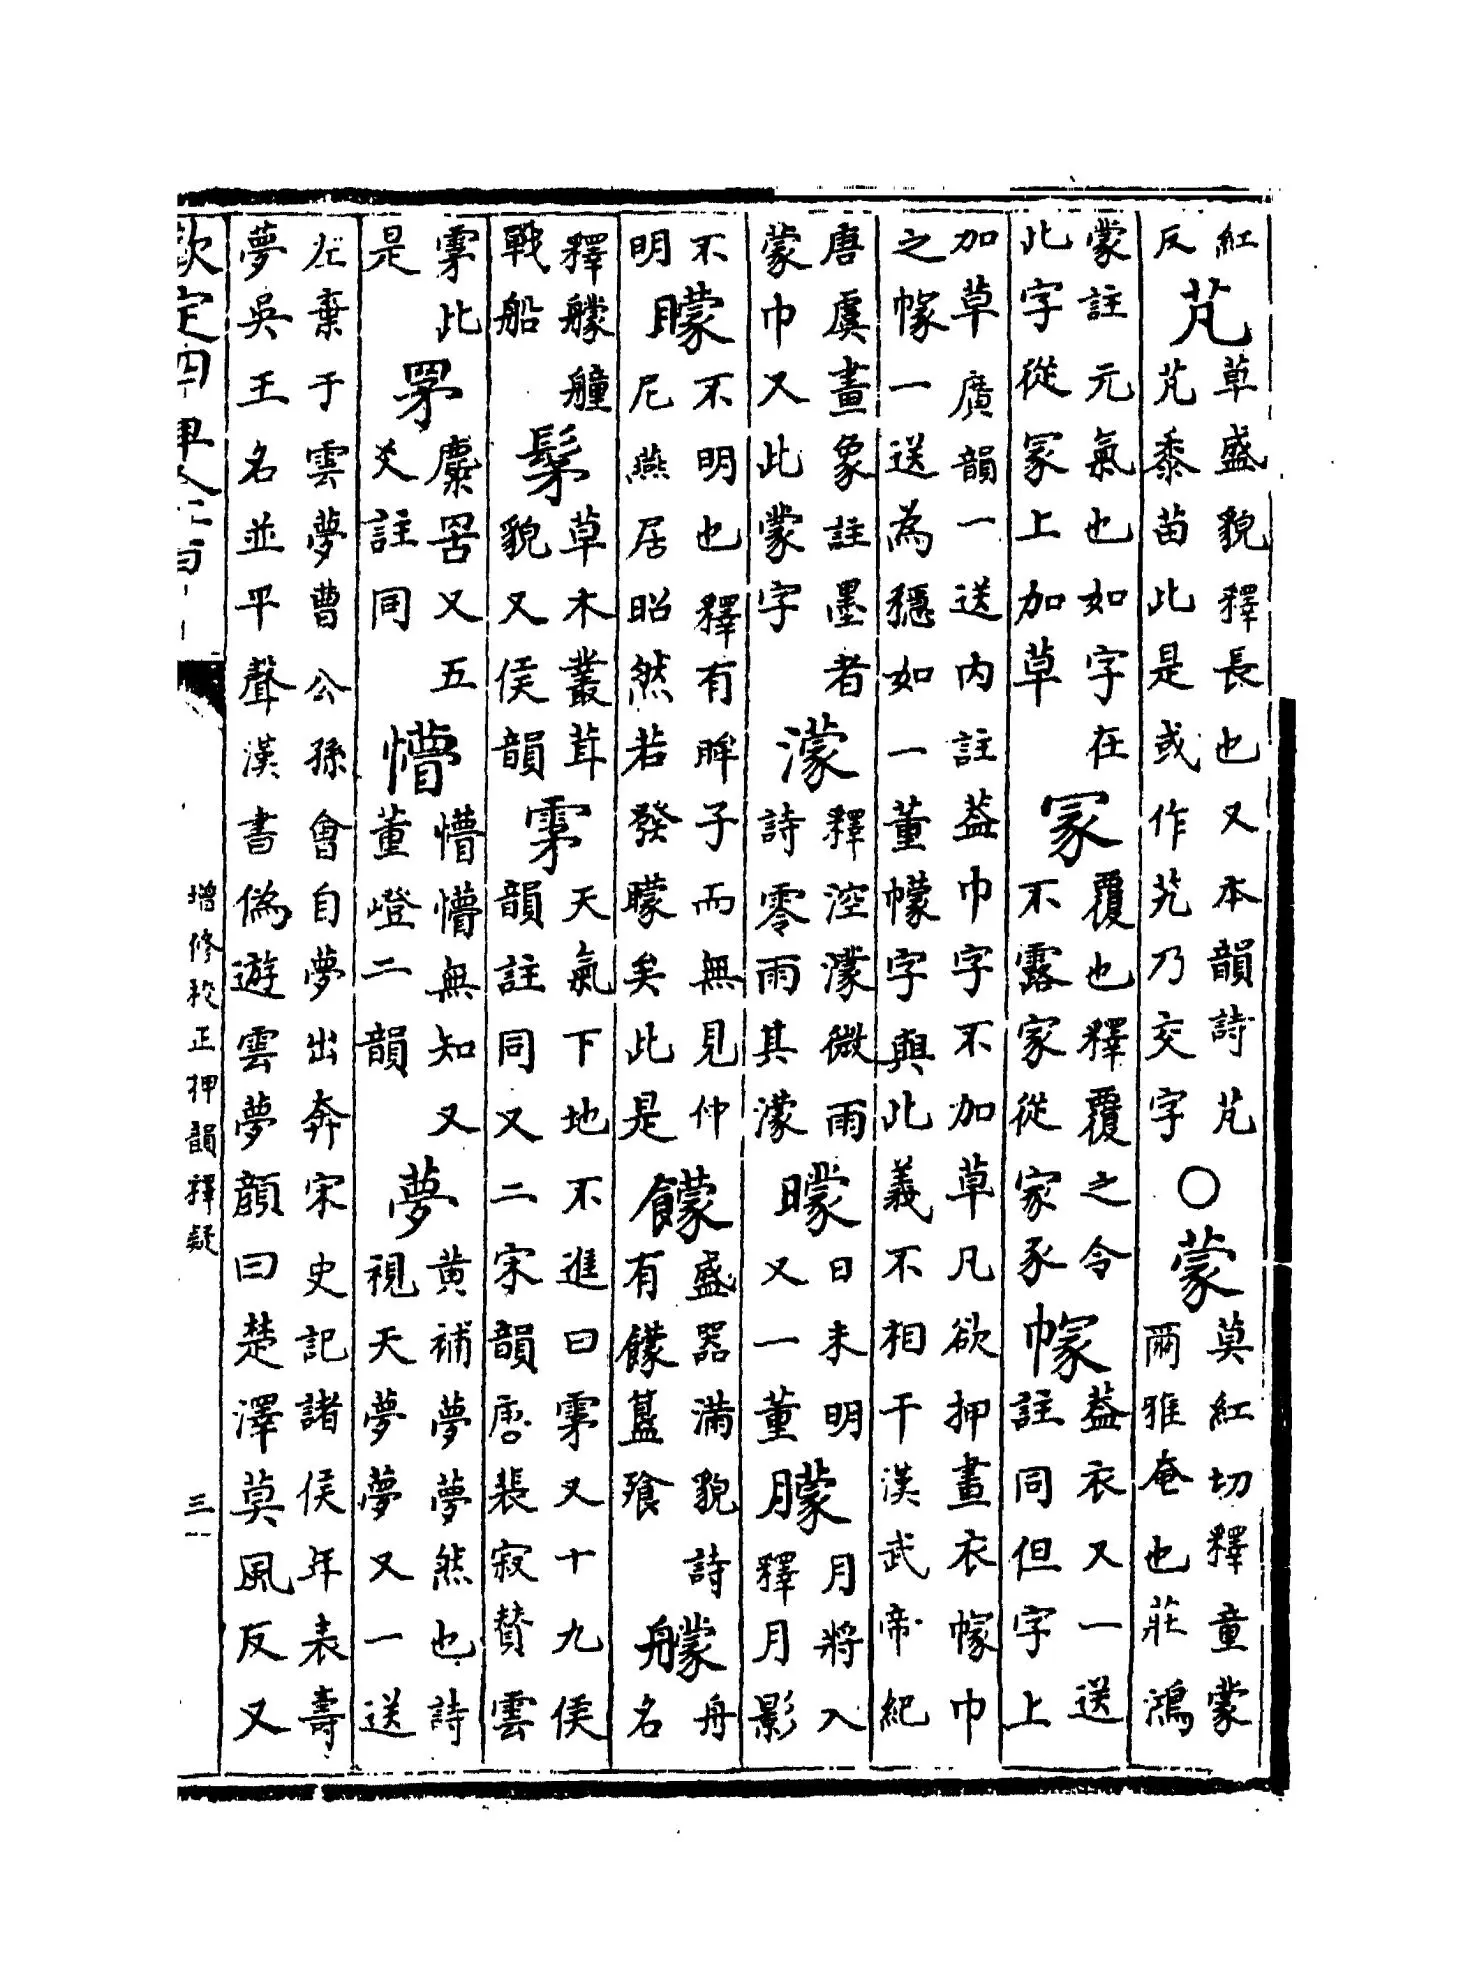 紅反芃草盛貌釋長也又本韻詩芃芃黍苗此是或作艽乃交字○蒙莫紅切釋童蒙爾雅奄也莊鴻
蒙註元氣也如字在此字從冡上加草冡覆也釋覆之令不露家從家豕幏葢衣又一送註同但字上
加草廣韻一送内註葢巾字不加草凡欲押畫衣幏巾之幏一送為穩如一董幪字與此義不相干漢武帝紀
唐虞畫象註墨者蒙巾又此蒙字濛釋涳濛微雨詩零雨其濛曚日未明又一董朦月將入釋月影
不明矇不明也釋有眸子而無見仲尼燕居昭然若發矇矣此是饛盛器滿貌詩有饛簋飧艨舟名
釋艨艟戰船髳草木叢茸貌又侯韻雺天氣下地不進曰雺又十九侯韻註同又二宋韻唐裴寂贊雲
雺此是罞麋罟又五爻註同懵懵懵無知又董嶝二韻夢黄補夢夢然也詩視天夢夢又一送
棄于雲夢曹公孫會自夢出奔宋史記諸侯年表壽夢吳王名並平聲漢書偽遊雲夢顔曰楚澤莫風反又
欽定四庫全書
增修校正押韻釋疑
三